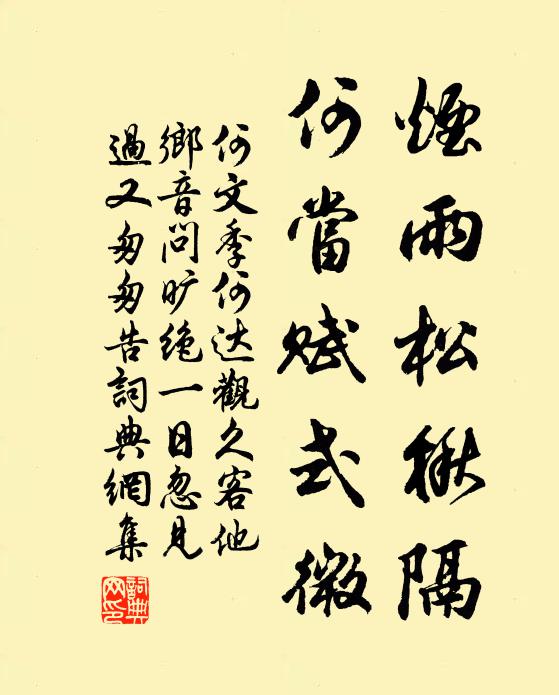 煙雨松楸隔
何當賦式微
何文季何达觀久客他
鄉音問旷绝一日忽見
過又匆匆告詞典網集
詞典网印